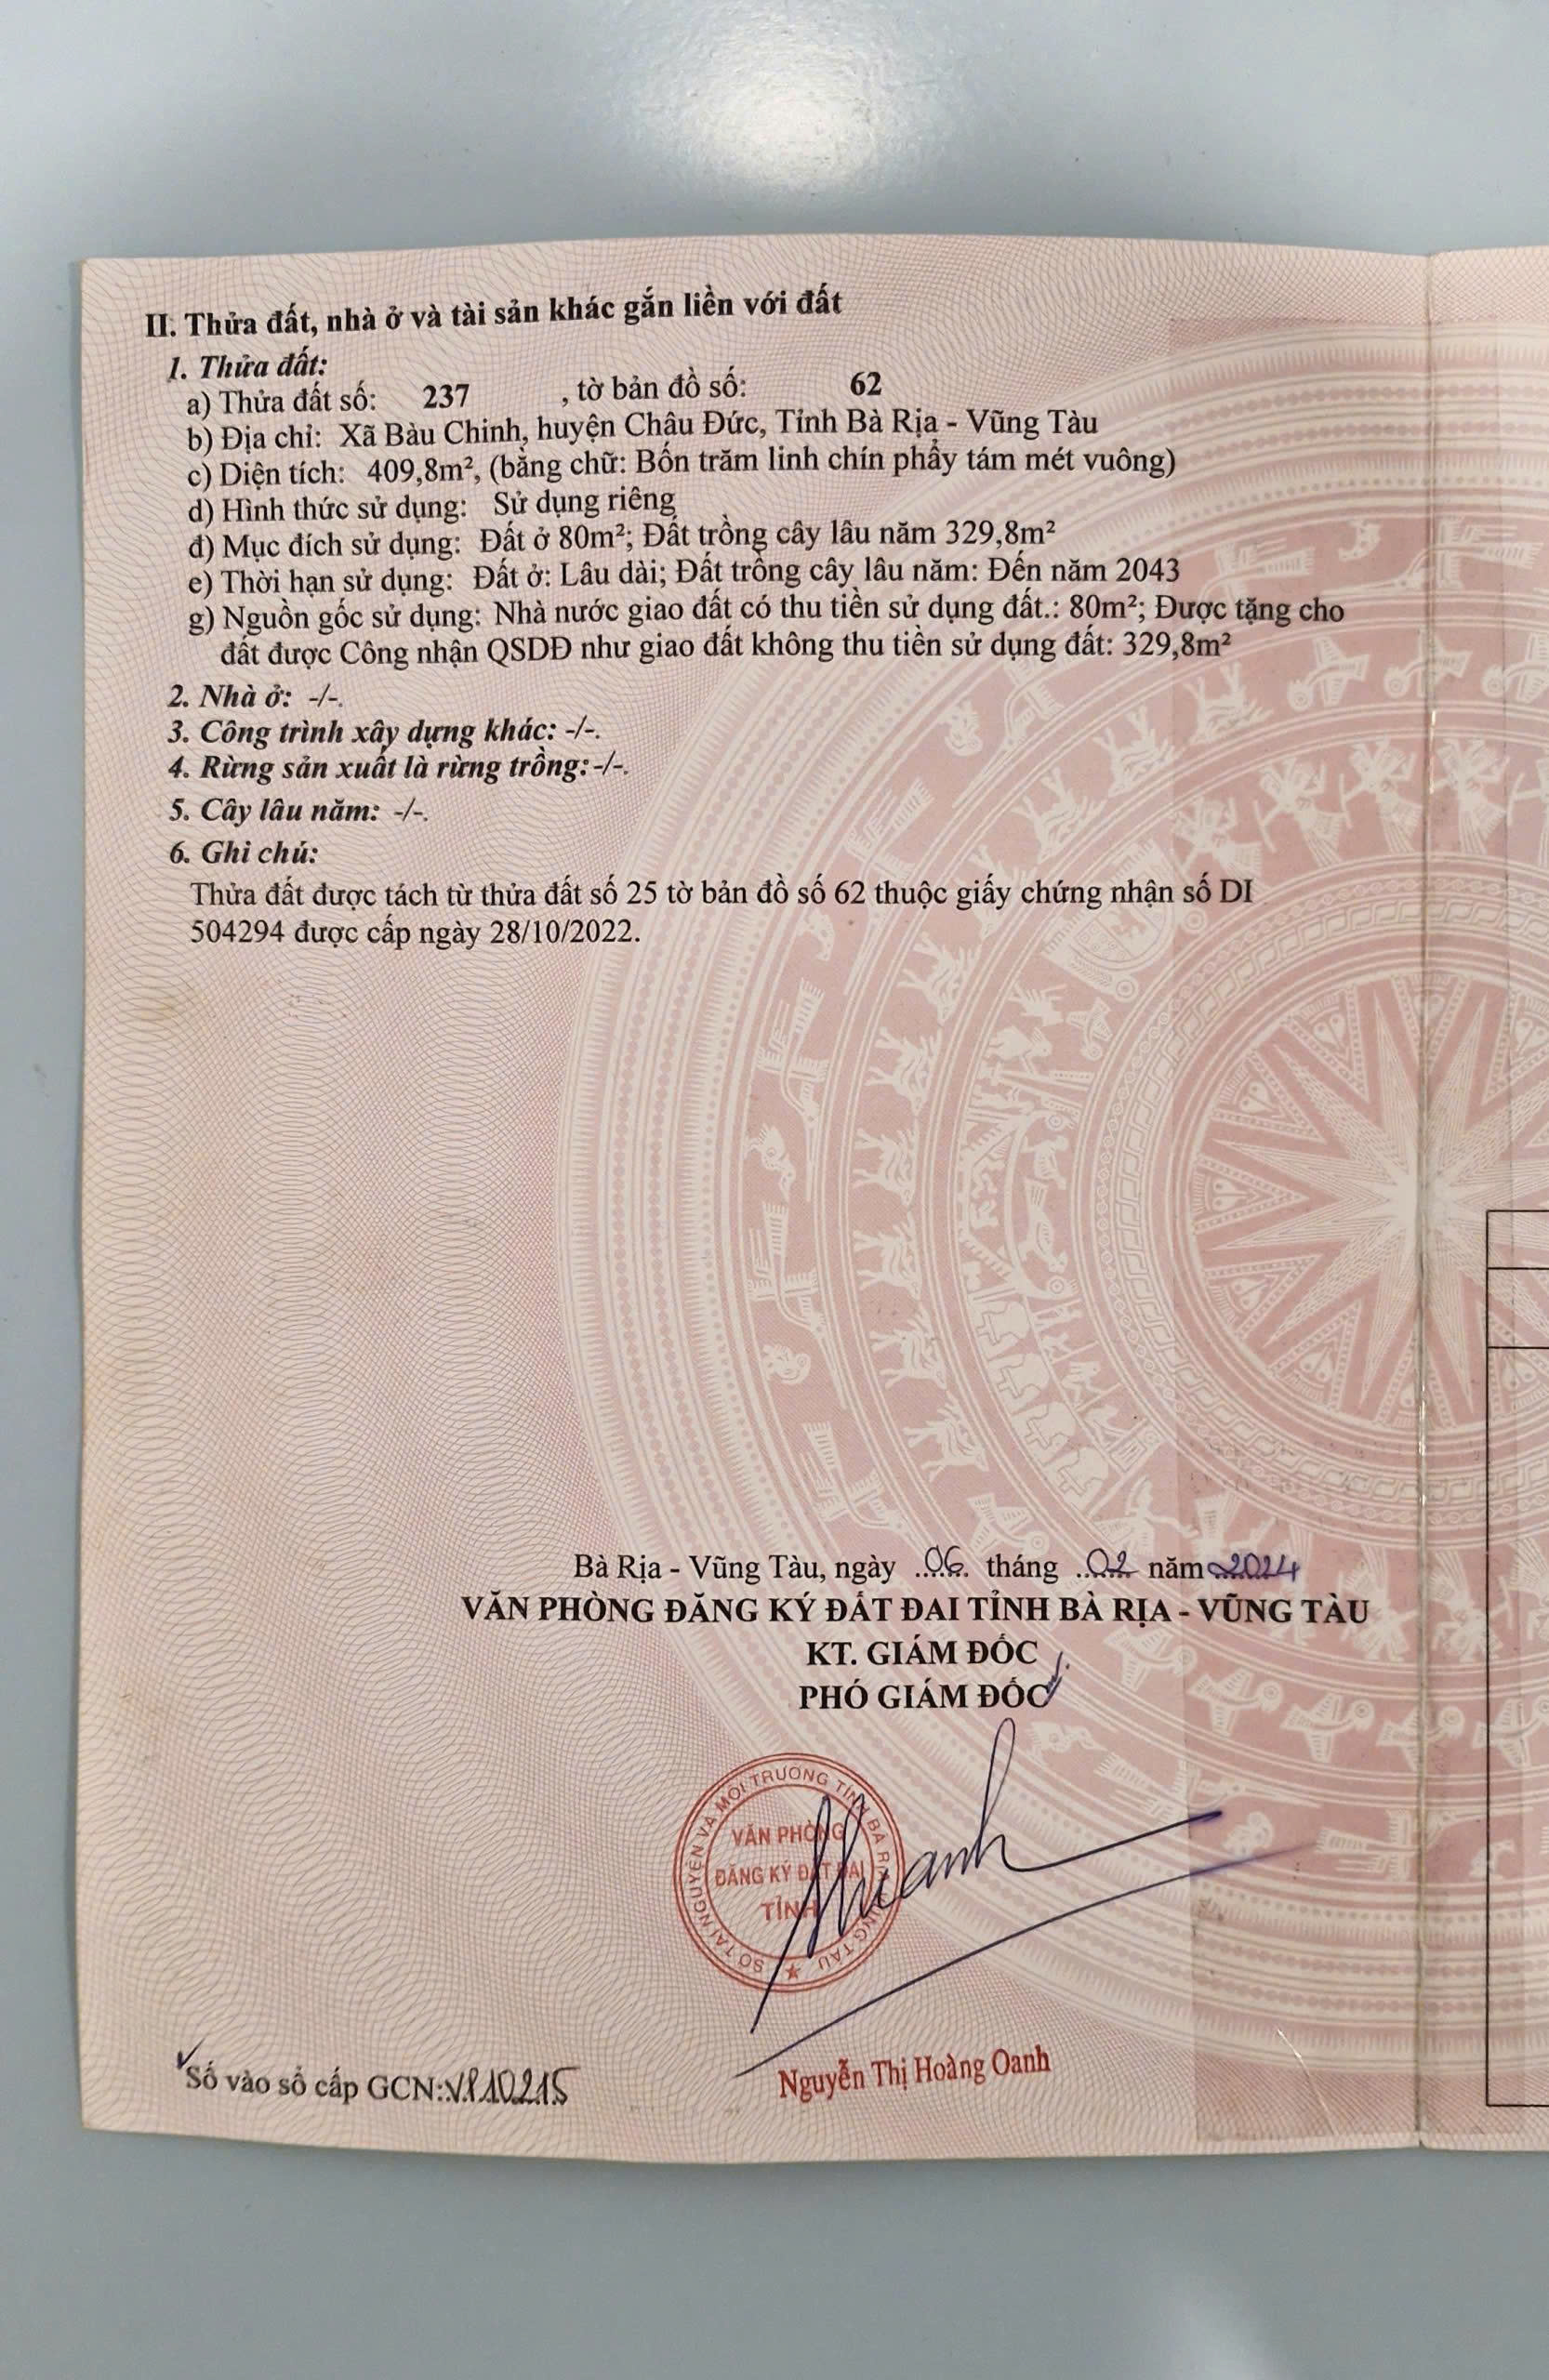 II. Thửa đất, nhà ở và tài sản khác gắn liền với đất
1. Thửa đất:
a) Thửa đất số: 237 , tờ bản đồ số: 62
b) Địa chỉ: Xã Bàu Chinh, huyện Châu Đức, Tỉnh Bà Rịa - Vũng Tàu
c) Diện tích: 409,8m², (bằng chữ: Bốn trăm linh chín phẩy tám mét vuông)
d) Hình thức sử dụng: Sử dụng riêng
đ) Mục đích sử dụng: Đất ở 80m²; Đất trồng cây lâu năm 329,8m²
e) Thời hạn sử dụng: Đất ở: Lâu dài; Đất trồng cây lâu năm: Đến năm 2043
g) Nguồn gốc sử dụng: Nhà nước giao đất có thu tiền sử dụng đất.: 80m²; Được tặng cho
đất được Công nhận QSDĐ như giao đất không thu tiền sử dụng đất: 329,8m²
2. Nhà ở: -/-.
3. Công trình xây dựng khác: -/-.
4. Rừng sản xuất là rừng trồng: -/-.
5. Cây lâu năm: -/-.
6. Ghi chú:
Thửa đất được tách từ thửa đất số 25 tờ bản đồ số 62 thuộc giấy chứng nhận số DI
504294 được cấp ngày 28/10/2022.
Bà Rịa - Vũng Tàu, ngày 06 tháng 02 năm 2024
VĂN PHÒNG ĐĂNG KÝ ĐẤT ĐAI TỈNH BÀ RỊA - VŨNG TÀU
KT. GIÁM ĐỐC
PHÓ GIÁM ĐỐC
SỞ TÀI NGUYÊN VÀ MÔI TRƯỜNG TỈNH BÀ RỊA VŨNG TÀU
VĂN PHÒNG
ĐĂNG KÝ ĐẤT ĐAI
TỈNH
Nguyễn Thị Hoàng Oanh
Số vào sổ cấp GCN: VP10215